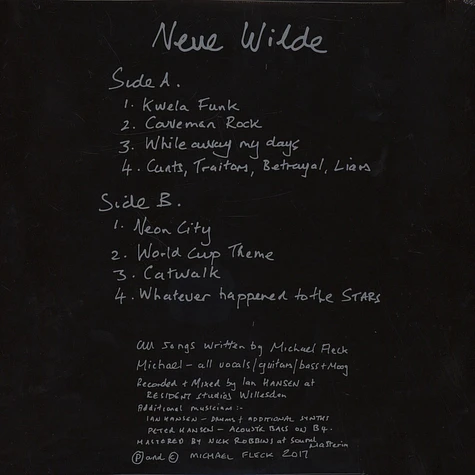 Neue Wilde
Side A.
1. Kwela Funk
2. Caveman Rock
3. While away my days
4. Cunts, Traitors, Betrayal, Liars
Side B.
1. Neon City
2. World Cup Theme
3. Catwalk
4. Whatever happened to the STARS
All songs written by Michael Fleck
Michael - all vocals/guitars/bass + Moog
Recorded + Mixed by Ian HANSEN at
RESIDENT studios Willesden
Additional musicians:-
IAN HANSEN - DRUMS + ADDITIONAL SYNTHS
PETER HANSEN - ACOUSTIC BASS ON B4.
MASTERED BY NICK ROBBINS at Sound Mastering
Ⓟ and © MICHAEL FLECK 2017